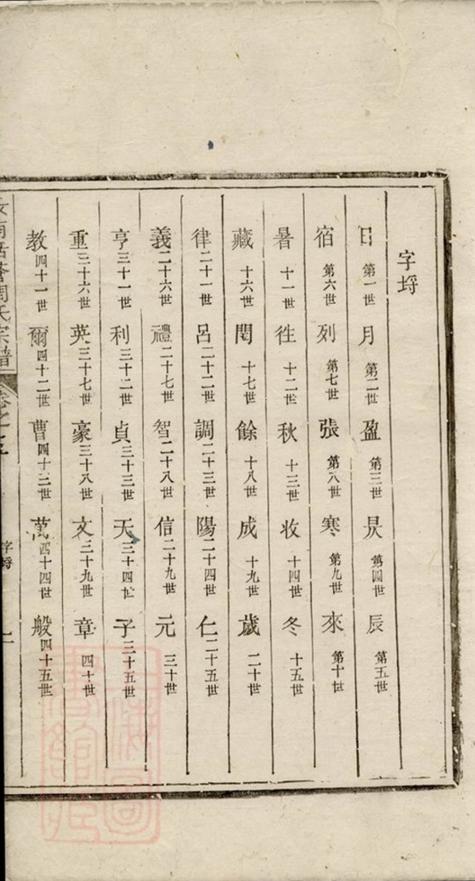 字埒
日第一世月第二世盈第三世昃第四世辰第五世
宿第六世列第七世張第八世寒第九世來第十世
暑十一世徃十二世秋十三世收十四世冬十五世
藏十六世閏十七世餘十八世成十九世歲二十世
律二十一世呂二十二世調二十三世陽二十四世仁二十五世
義二十六世禮二十七世智二十八世信二十九世元三十世
亨三十一世利三十二世貞三十三世天三十四世子三十五世
重三十六世英三十七世豪三十八世文三十九世章四十世
教四十一世爾四十二世曹四十三世萬四十四世般四十五世
南括蒼周氏宗譜
卷之
字埒